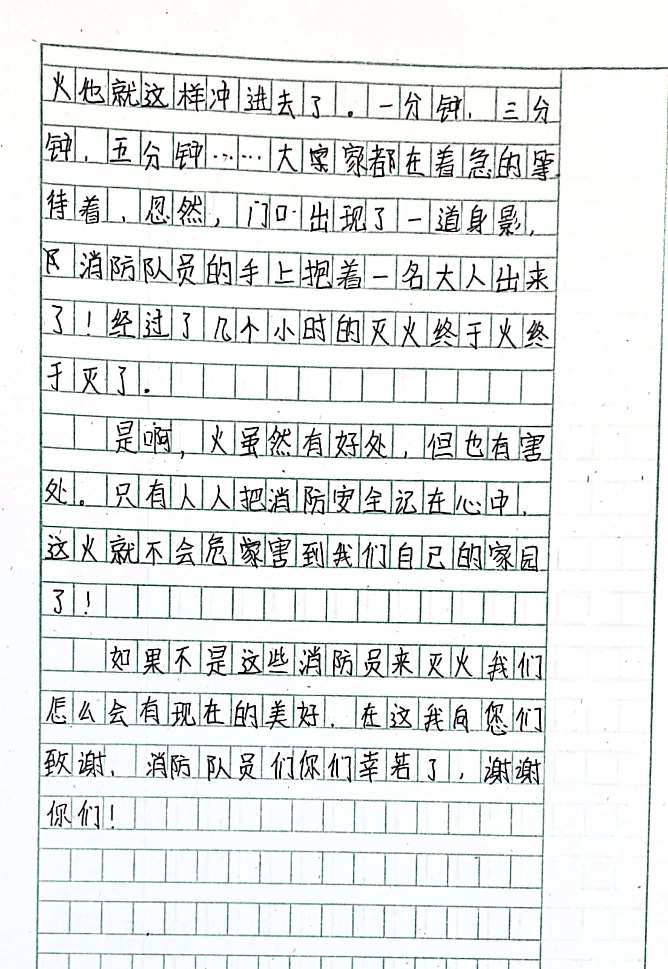 火他就这样冲进去了。一分钟，三分
钟，五分钟……大家都在着急的等
待着，忽然，门口出现了一道身影，
消防队员的手上抱着一名大人出来
了！经过了几个小时的灭火终于火终
于灭了。
是啊，火虽然有好处，但也有害
处。只有人人把消防安全记在心中，
这火就不会危害到我们自己的家园
了！
如果不是这些消防员来灭火我们
怎么会有现在的美好，在这我向您们
致谢，消防队员们你们幸若了，谢谢
你们！